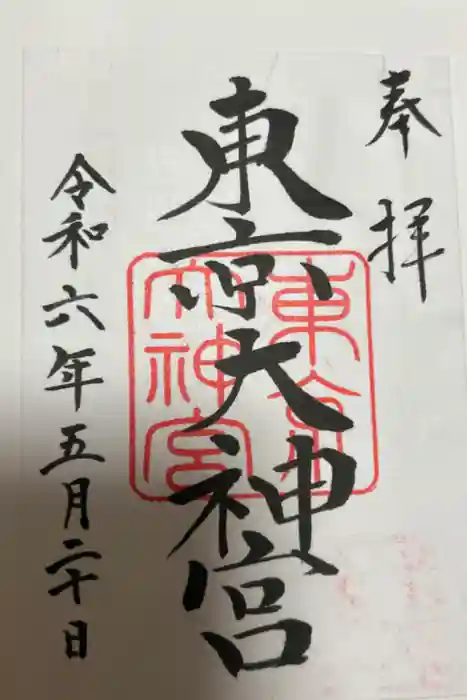 奉拝
東京大神宮
東京大神宮
令和六年五月二十日